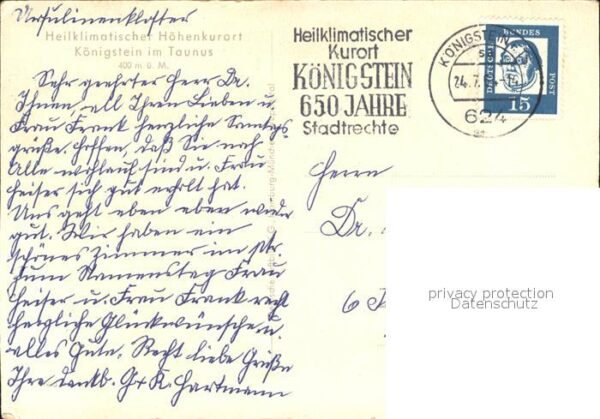 Ursulinenkloster
Heilklimatischer Höhenkurort
Königstein im Taunus
400 m ü. M.
Sehr geehrter Herr Dr.
Ihnen all Ihren Lieben u.
Frau Frank herzliche Sonntags
grüße. Hoffen, daß Sie noch
Alle wohlauf sind u. Frau
heiser sich gut erholt hat.
Uns geht eben eben wieder
gut. Wir haben ein
schönes Zimmer im
zum Namenstag Frau
heiser u. Frau Frank recht
herzliche Glückwünsche u.
alles Gute. Recht liebe Grüße
Ihre dankb. G. K. Hartmann
Heilklimatischer
Kurort
KÖNIGSTEIN
650 JAHRE
Stadtrechte
KÖNIGSTEIN
24.7.
624
DEUTSCHE BUNDESPOST
15
Herrn
Dr.
6
privacy protection
Datenschutz